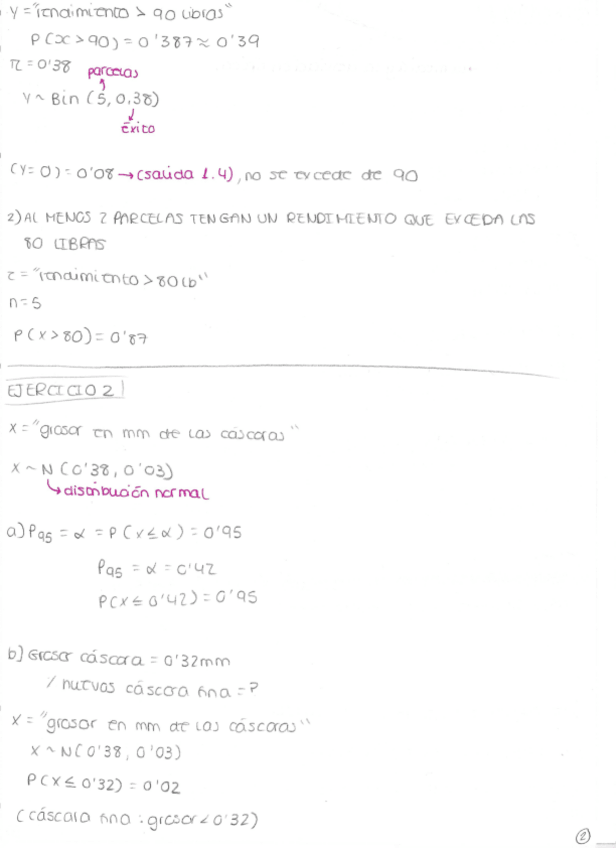 Y = "rendimiento > 90 libras"
P(x > 90) = 0'387 ≈ 0'39
π = 0'38 parcelas
Y ~ Bin (5, 0,38)
éxito
(Y = 0) = 0'08 → (salida 1.4), no se excede de 90
2) AL MENOS 2 PARCELAS TENGAN UN RENDIMIENTO QUE EXCEDA LAS
80 LIBRAS
z = "rendimiento > 80 lb"
n = 5
P(x > 80) = 0'87
EJERCICIO 2
x = "grosor en mm de las cáscaras"
x ~ N (0'38, 0'03)
↳ distribución normal
a) P95 = α = P(v ≤ α) = 0'95
P95 = α = 0'42
P(x ≤ 0'42) = 0'95
b) Grosor cáscara = 0'32mm
/ huevos cáscara fina = ?
x = "grosor en mm de las cáscaras"
x ~ N(0'38, 0'03)
P(x ≤ 0'32) = 0'02
(cáscara fina : grosor < 0'32)
2